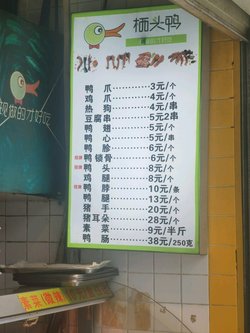 栖头鸭
鸭爪 3元/个
鸡爪 4元/个
热狗 4元/串
豆腐串 5元2串
鸭翅 5元/个
鸭心 5元/串
鸭胗 6元/个
鸭锁骨 6元/个
鸭头 8元/个
鸡腿 8元/个
鸭脖 10元/条
鸭腿 13元/个
猪手 20元/个
猪耳朵 28元/个
素菜 9元/半斤
鸭肠 38元/250克
做的才好吃
素菜